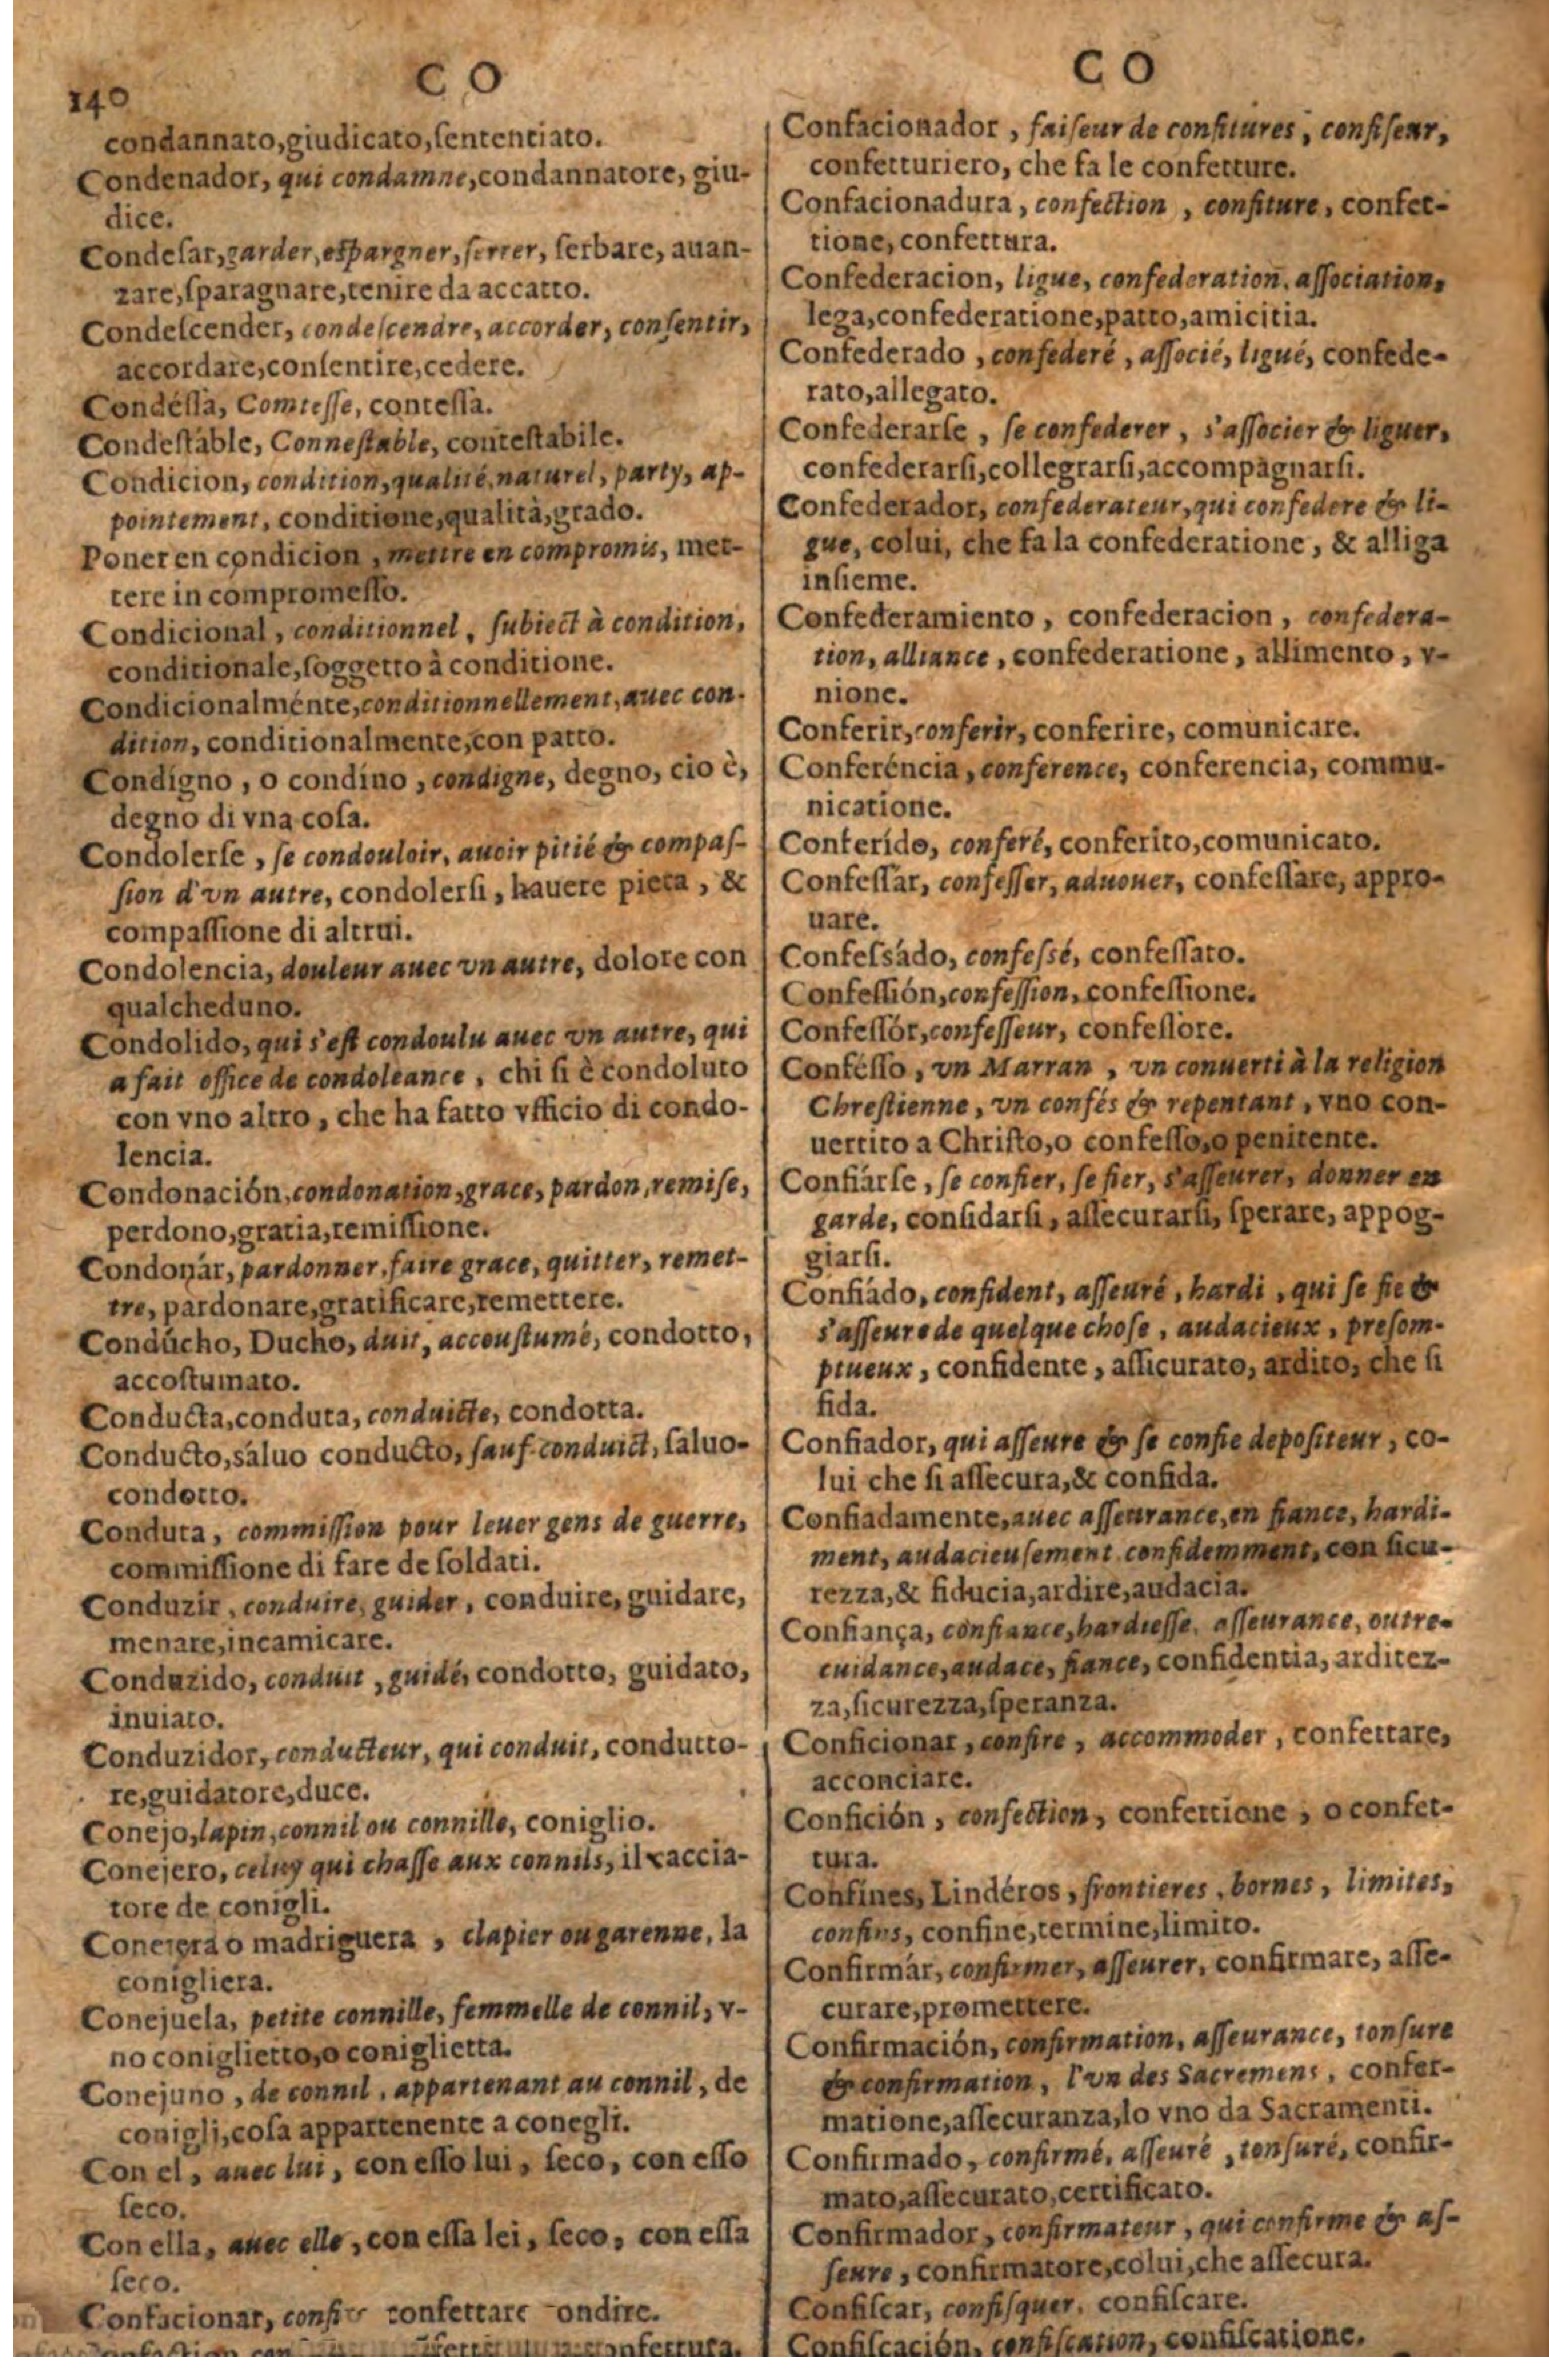 140
C O
condannato,giudicato,ſententiato.
Condenador, qui condamne,condannatore, giu-
dice.
Condeſar,garder,eſpargner,ſerrer, ſerbare, auan-
zare,ſparagnare,tenire da accatto.
Condeſcender, condeſcendre, accorder, conſentir,
accordare,conſentire,cedere.
Condéſſa, Comteſſe, conteſſa.
Condeſtáble, Conneſtable, conteſtabile.
Condicion, condition,qualité,naturel, party, ap-
pointement, conditione,qualità,grado.
Poner en condicion , mettre en compromis, met-
tere in compromeſſo.
Condicional , conditionnel , ſubiect à condition,
conditionale,ſoggetto à conditione.
Condicionalménte,conditionnellement,auec con-
dition, conditionalmente,con patto.
Condígno , o condíno , condigne, degno, cio è,
degno di vna coſa.
Condolerſe , ſe condouloir, auoir pitié & compaſ-
ſion d'vn autre, condolerſi , hauere pieta , &
compaſſione di altrui.
Condolencia, douleur auec vn autre, dolore con
qualcheduno.
Condolido, qui s'eſt condoulu auec vn autre, qui
a fait office de condoleance , chi ſi è condoluto
con vno altro , che ha fatto vfficio di condo-
lencia.
Condonación,condonation,grace, pardon,remiſe,
perdono,gratia,remiſſione.
Condonár, pardonner,faire grace, quitter, remet-
tre, pardonare,gratificare,remettere.
Condúcho, Ducho, duit, accouſtumé, condotto,
accoſtumato.
Conducta,conduta, conduicte, condotta.
Conducto,sáluo conducto, ſauf-conduict, ſaluo-
condotto.
Conduta , commiſſion pour leuer gens de guerre,
commiſſione di fare de ſoldati.
Conduzir , conduire, guider , conduire, guidare,
menare,incamicare.
Conduzido, conduit , guidé, condotto, guidato,
inuiato.
Conduzidor, conducteur, qui conduit, condutto-
re,guidatore,duce.
Conejo,lapin,connil ou connille, coniglio.
Conejero, celuy qui chaſſe aux connils, il caccia-
tore de conigli.
Conejera o madriguera , clapier ou garenne, la
conigliera.
Conejuela, petite connille, femmelle de connil, v-
no coniglietto,o coniglietta.
Conejuno , de connil , appartenant au connil , de
conigli,coſa appartenente a conegli.
Con el , auec lui , con eſſo lui , ſeco, con eſſo
ſeco.
Con ella, auec elle , con eſſa lei , ſeco, con eſſa
ſeco.
Confacionar, confettare ondire.
C O
Confacionador , faiſeur de confitures , confiſeur,
confetturiero, che fa le confetture.
Confacionadura , confection , confiture , confet-
tione, confettura.
Confederacion, ligue, confederation, aſſociation,
lega,confederatione,patto,amicitia.
Confederado , confederé , aſſocié, ligué, confede-
rato,allegato.
Confederarſe , ſe confederer , s'aſſocier & liguer,
confederarſi,collegrarſi,accompagnarſi.
Confederador, confederateur,qui confedere & li-
gue, colui, che fa la confederatione , & alliga
inſieme.
Confederamiento , confederacion , confedera-
tion, alliance , confederatione , allimento , v-
nione.
Conferir,conferir, conferire, comunicare.
Conferéncia , conference, conferencia, commu-
nicatione.
Conferído, conferé, conferito,comunicato.
Confeſſar, confeſſer, aduouer, confeſſare, appro-
uare.
Confeſsádo, confeſsé, confeſſato.
Confeſſión,confeſſion, confeſſione.
Confeſſór,confeſſeur, confeſſore.
Conféſſo , vn Marran , vn conuerti à la religion
Chreſtienne , vn confés & repentant , vno con-
uertito a Chriſto,o confeſſo,o penitente.
Confiárſe , ſe confier, ſe fier, s'aſſeurer, donner en
garde, confidarſi , aſſecurarſi, ſperare, appog-
giarſi.
Confiádo, confident, aſſeuré , hardi , qui ſe fie &
s'aſſeure de quelque choſe , audacieux , preſom-
ptueux , confidente , aſſicurato, ardito, che ſi
fida.
Confiador, qui aſſeure & ſe confie depoſiteur , co-
lui che ſi aſſecura,& confida.
Confiadamente,auec aſſeurance,en fiance, hardi-
ment, audacieuſement confidemment, con ſicu-
rezza,& fiducia,ardire,audacia.
Confiança, confiance,hardieſſe, aſſeurance, outre-
cuidance,audace, fiance, confidentia, arditez-
za,ſicurezza,ſperanza.
Conficionar , confire , accommoder , confettare,
acconciare.
Confición , confection , confettione , o confet-
tura.
Confínes, Lindéros , frontieres , bornes , limites,
confins, confine,termine,limito.
Confirmár, confirmer, aſſeurer, confirmare, aſſe-
curare,promettere.
Confirmación, confirmation, aſſeurance, tonſure
& confirmation , l'vn des Sacremens , confer-
matione,aſſecuranza,lo vno da Sacramenti.
Confirmado, confirmé, aſſeuré , tonſuré, confir-
mato,aſſecurato,certificato.
Confirmador , confirmateur , qui confirme & aſ-
ſeure , confirmatore,colui,che aſſecura.
Confiſcar, confiſquer, confiſcare.
Confiſcación, confiſcation, confiſcatione.